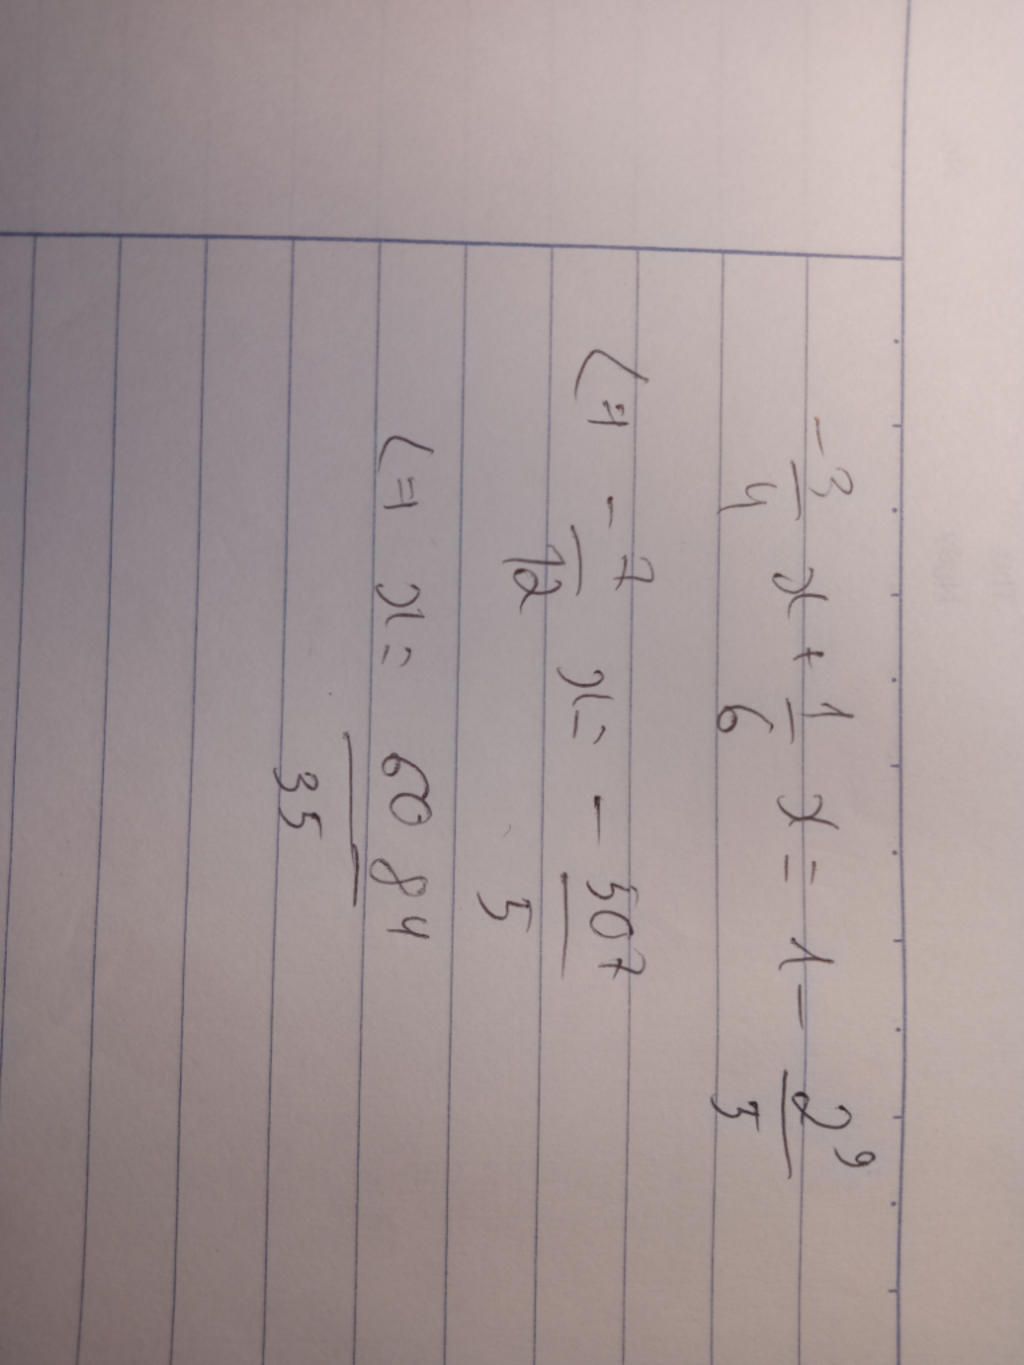 -3/4 x + 1/6 x = 1 - 2^9/5
(=) -7/12 x = - 507/5
(=) x = 6084/35